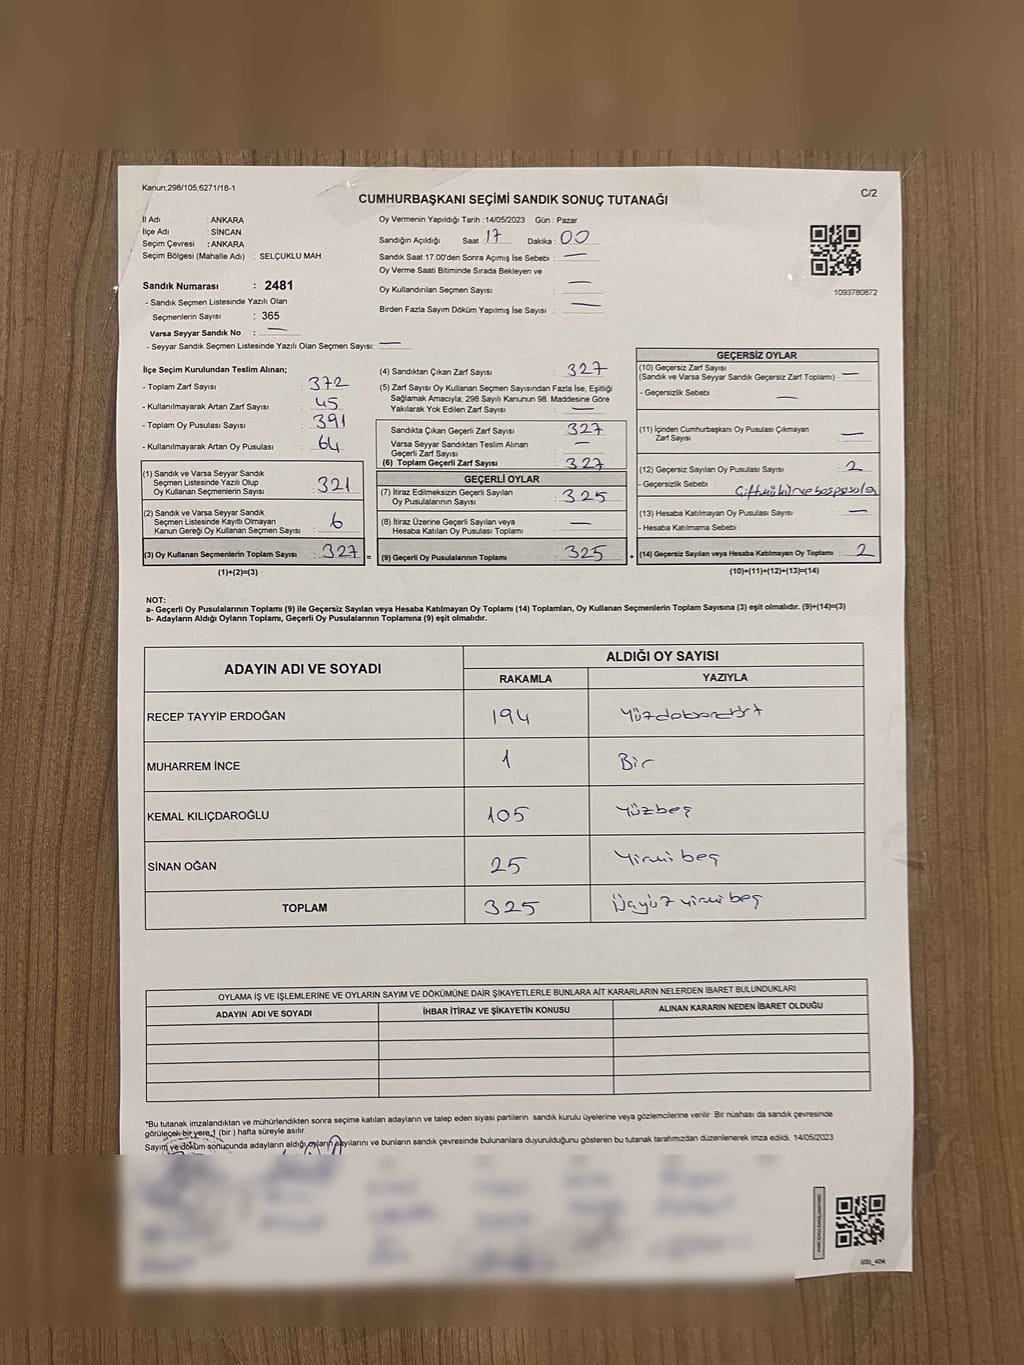 Kanun;298/105;6271/18-1
C/2
CUMHURBAŞKANI SEÇİMİ SANDIK SONUÇ TUTANAĞI
İl Adı : ANKARA
İlçe Adı : SİNCAN
Seçim Çevresi : ANKARA
Seçim Bölgesi (Mahalle Adı) : SELÇUKLU MAH.
Sandık Numarası : 2481
- Sandık Seçmen Listesinde Yazılı Olan
Seçmenlerin Sayısı : 365
Varsa Seyyar Sandık No : —
- Seyyar Sandık Seçmen Listesinde Yazılı Olan Seçmen Sayısı: —
Oy Vermenin Yapıldığı Tarih : 14/05/2023 Gün : Pazar
Sandığın Açıldığı Saat : 17 Dakika : 00
Sandık Saat 17.00'den Sonra Açımış İse Sebebi : —
Oy Verme Saati Bitiminde Sırada Bekleyen ve
Oy Kullandırılan Seçmen Sayısı : —
Birden Fazla Sayım Döküm Yapılmış İse Sayısı : —
1093780872
İlçe Seçim Kurulundan Teslim Alınan;
- Toplam Zarf Sayısı : 372
- Kullanılmayarak Artan Zarf Sayısı : 45
- Toplam Oy Pusulası Sayısı : 391
- Kullanılmayarak Artan Oy Pusulası : 64
(1) Sandık ve Varsa Seyyar Sandık
Seçmen Listesinde Yazılı Olup
Oy Kullanan Seçmenlerin Sayısı : 321
(2) Sandık ve Varsa Seyyar Sandık
Seçmen Listesinde Kayıtlı Olmayan
Kanun Gereği Oy Kullanan Seçmen Sayısı : 6
(3) Oy Kullanan Seçmenlerin Toplam Sayısı : 327 =
(1)+(2)=(3)
(4) Sandıktan Çıkan Zarf Sayısı : 327
(5) Zarf Sayısı Oy Kullanan Seçmen Sayısından Fazla İse, Eşitliği
Sağlamak Amacıyla; 298 Sayılı Kanunun 98. Maddesine Göre
Yakılarak Yok Edilen Zarf Sayısı : —
Sandıkta Çıkan Geçerli Zarf Sayısı : 327
Varsa Seyyar Sandıktan Teslim Alınan
Geçerli Zarf Sayısı : —
(6) Toplam Geçerli Zarf Sayısı : 327
GEÇERLİ OYLAR
(7) İtiraz Edilmeksizin Geçerli Sayılan
Oy Pusulalarının Sayısı : 325
(8) İtiraz Üzerine Geçerli Sayılan veya
Hesaba Katılan Oy Pusulası Toplamı : —
(9) Geçerli Oy Pusulalarının Toplamı : 325 +
GEÇERSİZ OYLAR
(10) Geçersiz Zarf Sayısı
(Sandık ve Varsa Seyyar Sandık Geçersiz Zarf Toplamı) : —
- Geçersizlik Sebebi : —
(11) İçinden Cumhurbaşkanı Oy Pusulası Çıkmayan
Zarf Sayısı : —
(12) Geçersiz Sayılan Oy Pusulası Sayısı : 2
- Geçersizlik Sebebi : Çift mühür ve boş pusula
(13) Hesaba Katılmayan Oy Pusulası Sayısı : —
- Hesaba Katılmama Sebebi :
(14) Geçersiz Sayılan veya Hesaba Katılmayan Oy Toplamı : 2
(10)+(11)+(12)+(13)=(14)
NOT:
a- Geçerli Oy Pusulalarının Toplamı (9) ile Geçersiz Sayılan veya Hesaba Katılmayan Oy Toplamı (14) Toplamları, Oy Kullanan Seçmenlerin Toplam Sayısına (3) eşit olmalıdır. (9)+(14)=(3)
b- Adayların Aldığı Oyların Toplamı, Geçerli Oy Pusulalarının Toplamına (9) eşit olmalıdır.
ADAYIN ADI VE SOYADI
ALDIĞI OY SAYISI
RAKAMLA YAZIYLA
RECEP TAYYİP ERDOĞAN 194 Yüzdoksandört
MUHARREM İNCE 1 Bir
KEMAL KILIÇDAROĞLU 105 Yüzbeş
SİNAN OĞAN 25 Yirmi beş
TOPLAM 325 Üçyüz yirmi beş
OYLAMA İŞ VE İŞLEMLERİNE VE OYLARIN SAYIM VE DÖKÜMÜNE DAİR ŞİKAYETLERLE BUNLARA AİT KARARLARIN NELERDEN İBARET BULUNDUKLARI
ADAYIN ADI VE SOYADI İHBAR İTİRAZ VE ŞİKAYETİN KONUSU ALINAN KARARIN NEDEN İBARET OLDUĞU
*Bu tutanak imzalandıktan ve mühürlendikten sonra seçime katılan adayların ve talep eden siyasi partilerin sandık kurulu üyelerine veya gözlemcilerine verilir. Bir nüshası da sandık çevresinde
görülecek bir yere 1 (bir) hafta süreyle asılır.
Sayım ve döküm sonucunda adayların aldığı oyların sayılarını ve bunların sandık çevresinde bulunanlara duyurulduğunu gösteren bu tutanak tarafımızdan düzenlenerek imza edildi. 14/05/2023